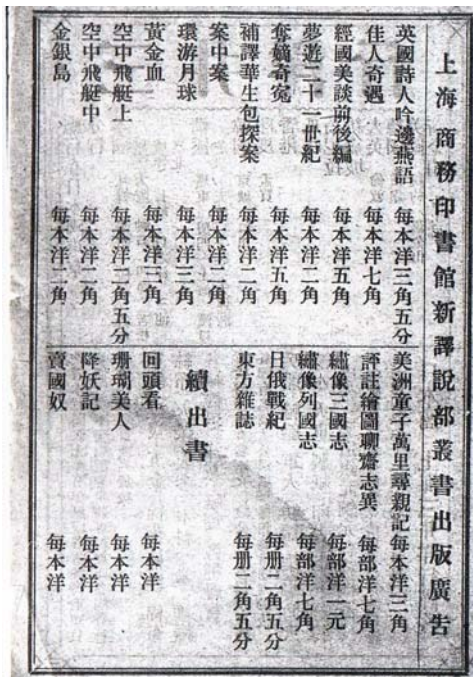 上海商務印書館新譯說部叢書出版廣告
英國詩人吟邊燕語 每本洋三角五分
佳人奇遇 每本洋七角
經國美談前後編 每本洋五角
夢遊二十一世紀 每本洋二角
奪嫡奇冤 每本洋五角
補譯華生包探案 每本洋二角
案中案 每本洋二角
環游月球 每本洋三角
黃金血 每本洋三角
空中飛艇上 每本洋二角五分
空中飛艇中 每本洋二角
金銀島 每本洋二角
美洲童子萬里尋親記 每本洋三角
評註繪圖聊齋志異 每部洋七角
繡像三國志 每部洋一元
繡像列國志 每部洋七角
日俄戰紀 每册二角五分
東方雜誌 每册二角五分
續出書
回頭看 每本洋
珊瑚美人 每本洋
降妖記 每本洋
賣國奴 每本洋